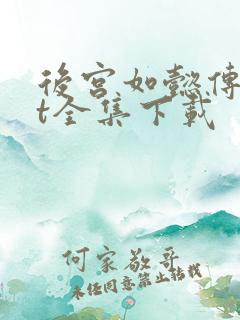 後宮如懿傳
t全集下載
何家敬哥
未经同意禁止转载